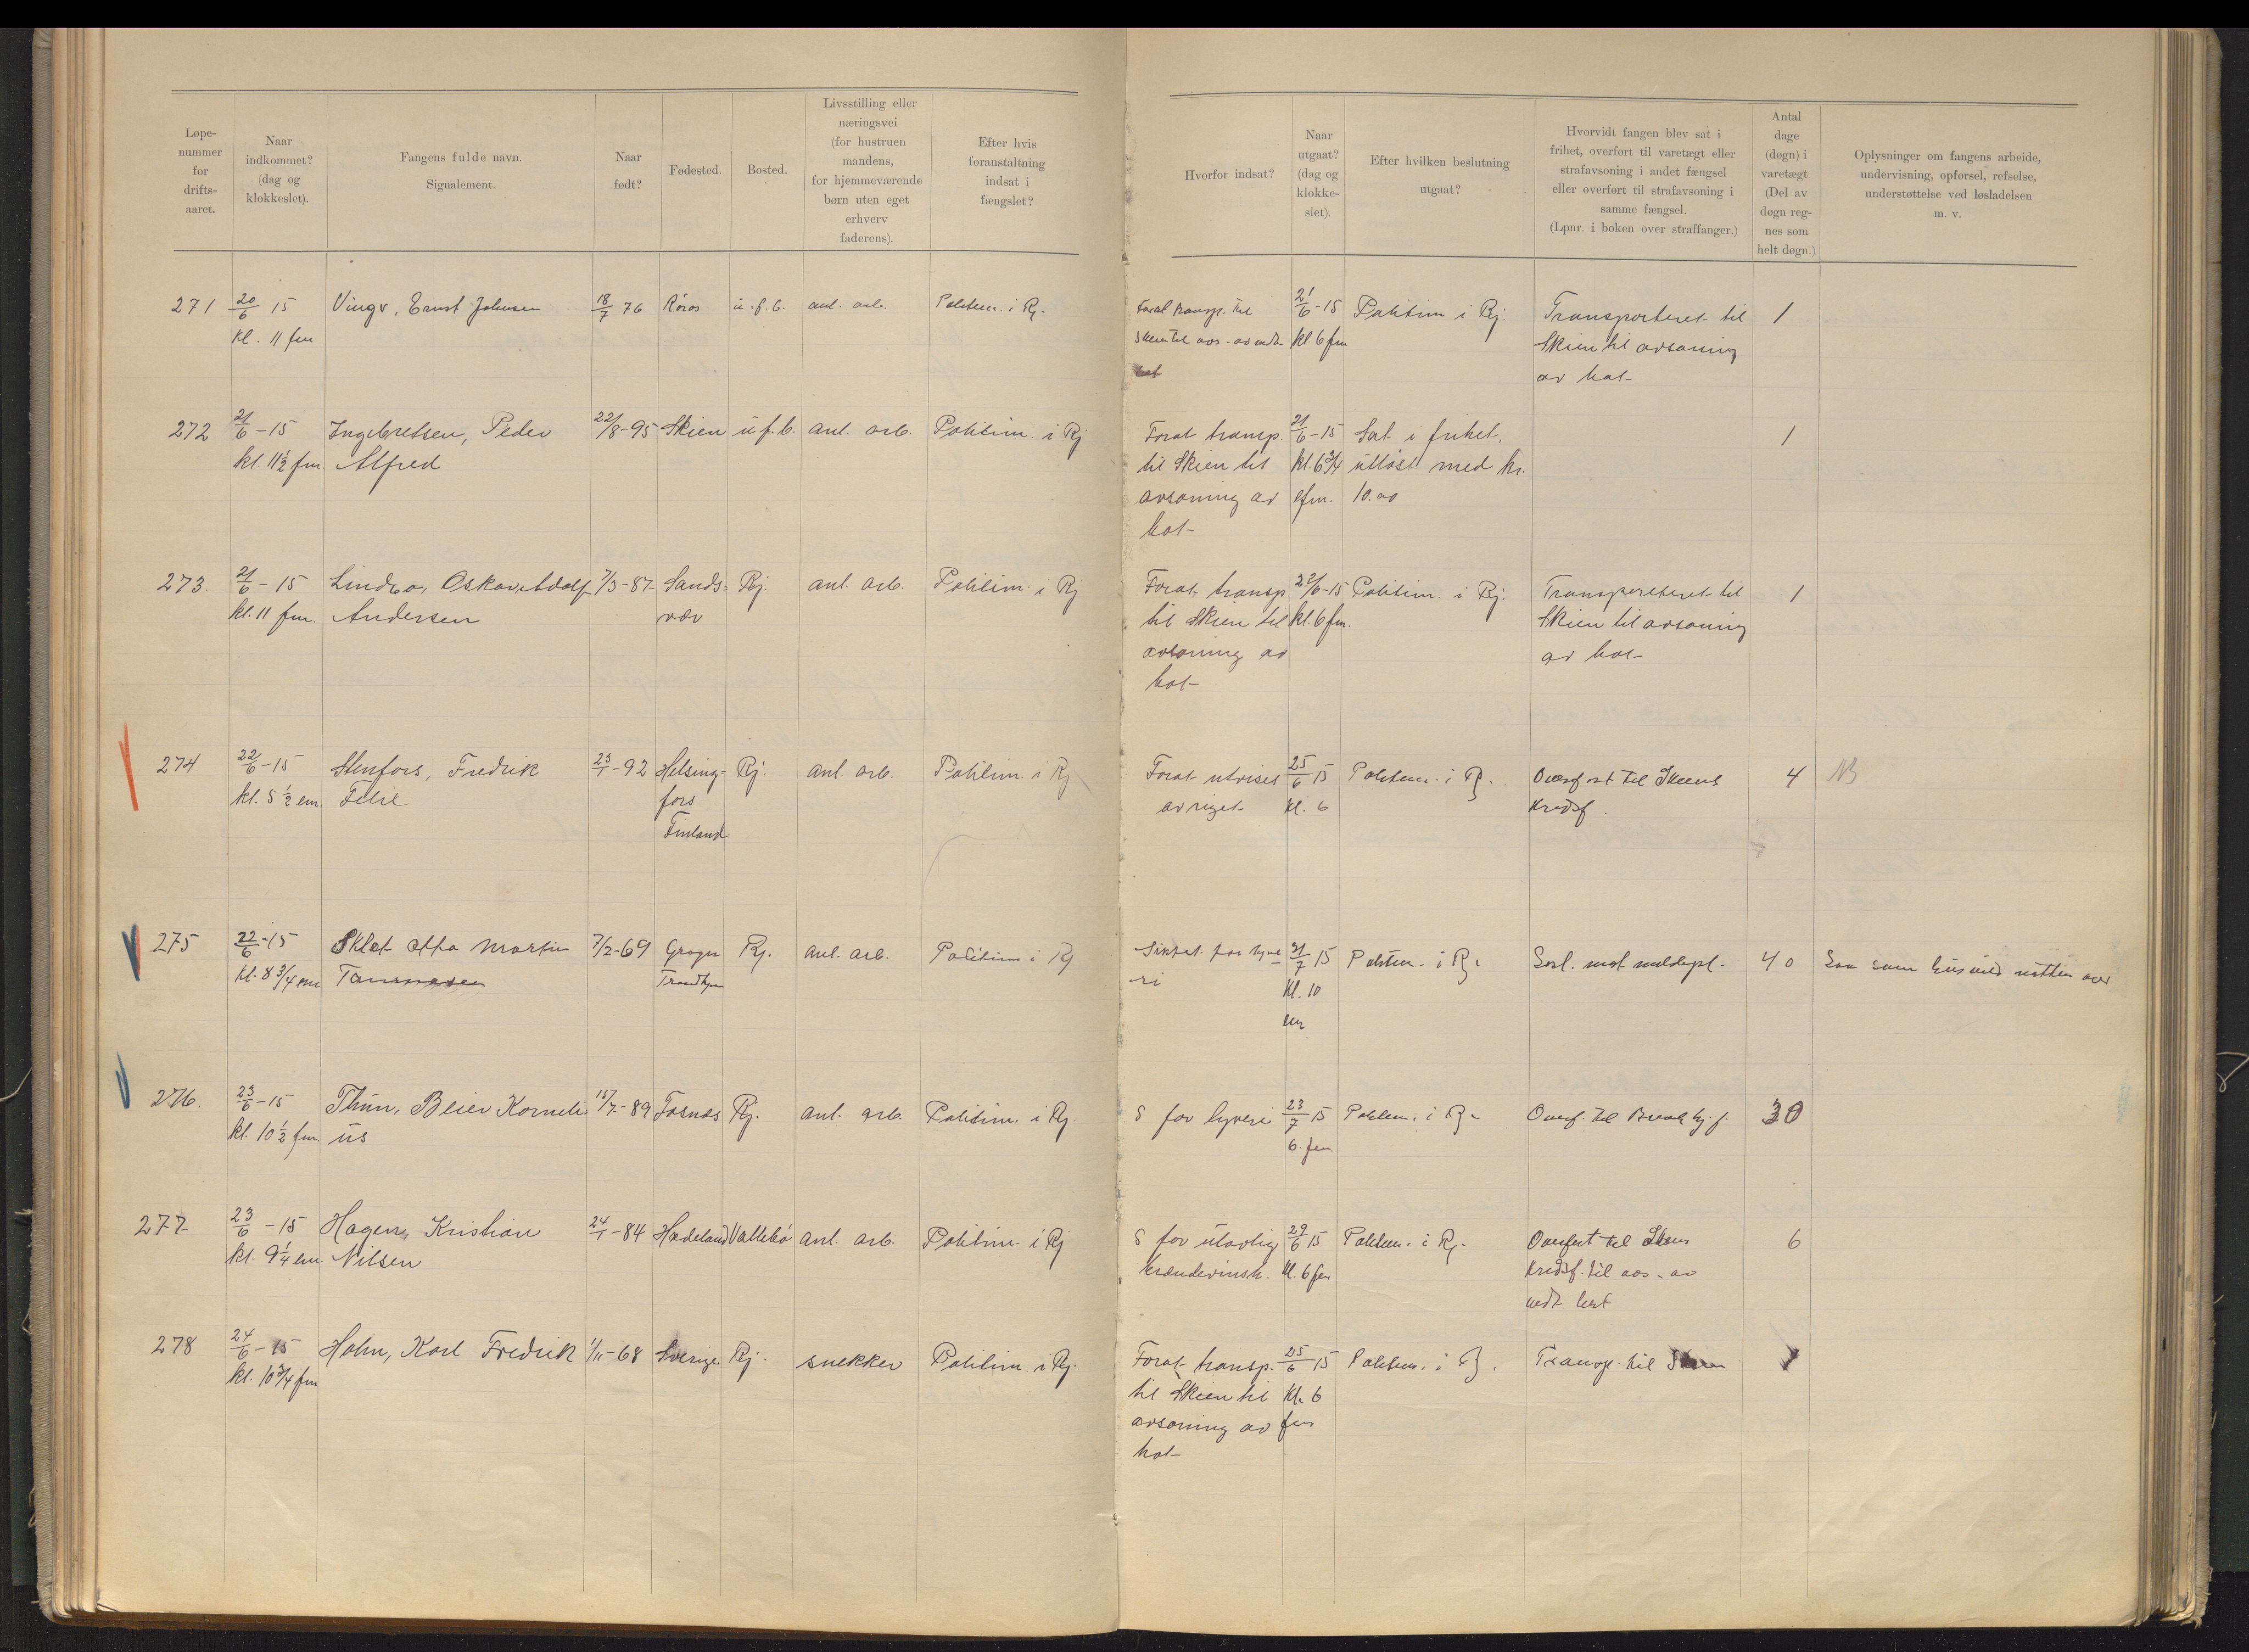 Løpe-
nummer
for
drifts-
aaret.
Naar
indkommet?
(dag og
klokkeslet).
Fangens fulde navn.
Signalement.
Naar
født?
Fødested.
Bosted.
Livsstilling eller
næringsvei
(for hustruen
mandens,
for hjemmeværende
børn uten eget
erhverv
faderens).
Efter hvis
foranstaltning
indsat i
fængslet?
Hvorfor indsat?
Naar
utgaat?
(dag og
klokke-
slet).
Efter hvilken beslutning
utgaat?
Hvorvidt fangen blev sat i
frihet, overført til varetægt eller
strafavsoning i andet fængsel
eller overført til strafavsoning i
samme fængsel.
(Lpnr. i boken over straffanger.)
Antal
dage
(døgn) i
varetægt
(Del av
døgn reg-
nes som
helt døgn.)
Oplysninger om fangens arbeide,
undervisning, opførsel, refselse,
understøttelse ved løsladelsen
m. v.
271 20/6 15 Vingr, Ernst Johnsen 18/7 76 Röros u.f.b. anl. arb. Politim. i Rj. Forat transp. til 21/6-15 Politim i Rj. Transporteret til 1
kl. 11 fm Skien til avs. av kl 6 fm Skien til avsoning
av bot-
272 21/6-15 Ingebretsen, Peder 22/8-95 Skien u.f.b. anl. arb. Politim. i Rj Forat transp. 21/6-15 Sat i frihet, 1
kl. 11½ fm. Alfred til Skien til kl. 6¾ utløst med kr.
avsoning av efm. 10.00
bot-
273. 21/6-15 Lindbo, Oskar Adolf 7/3-87 Sands- Rj. anl. arb. Politim. i Rj Forat transp 22/6-15 Politim. i Rj. Transporteret til 1
kl. 11 fm. Andersen vær til Skien til kl. 6 fm. Skien til avsoning
avsoning av av bot-
bot-
274 22/6-15 Stenfors, Fredrik 23/1-92 Helsing- Rj. anl. arb. Politim. i Rj Forat utvises 25/6 15 Politim. i Rj. Overført til Skiens 4 NB
kl. 5½ em. Felix fors av riget kl. 6 Kredsf.
Finland
275 22/6-15 Sklet Otto Martin 7/2-69 Rj. anl. arb. Politim i Rj Siktet for tyve- 31/7 15 Politim. i Rj. mot meldepl. 40 som
kl. 8¾ em Trondhjem ri Kl. 10
em
276. 23/6-15 Thun, Beier Korneli- 15/7-89 Fosnæs Rj. anl. arb. Politim. i Rj. S for tyveri 23/7 15 Politim. i Rj. Overf. til 30
kl. 10½ fm. us 6. fm
277 23/6-15 Hagen, Kristian 24/1-84 Hadeland Vallebö anl. arb. Politim. i Rj S for ulovlig 29/6 15 Politim. i Rj. Overført til Skiens 6
kl. 9¼ em. Nilsen brændevinsh. kl. 6 fm Kredsf. til avs. av
bot
278 24/6-15 Holm, Karl Fredrik 1/11-68 Sverige Rj. snekker Politim. i Rj. Forat transp. 25/6 15 Politim. i Rj. Transp. til Skien 1
kl. 10¾ fm til Skien til kl. 6
avsoning av fm
bot-